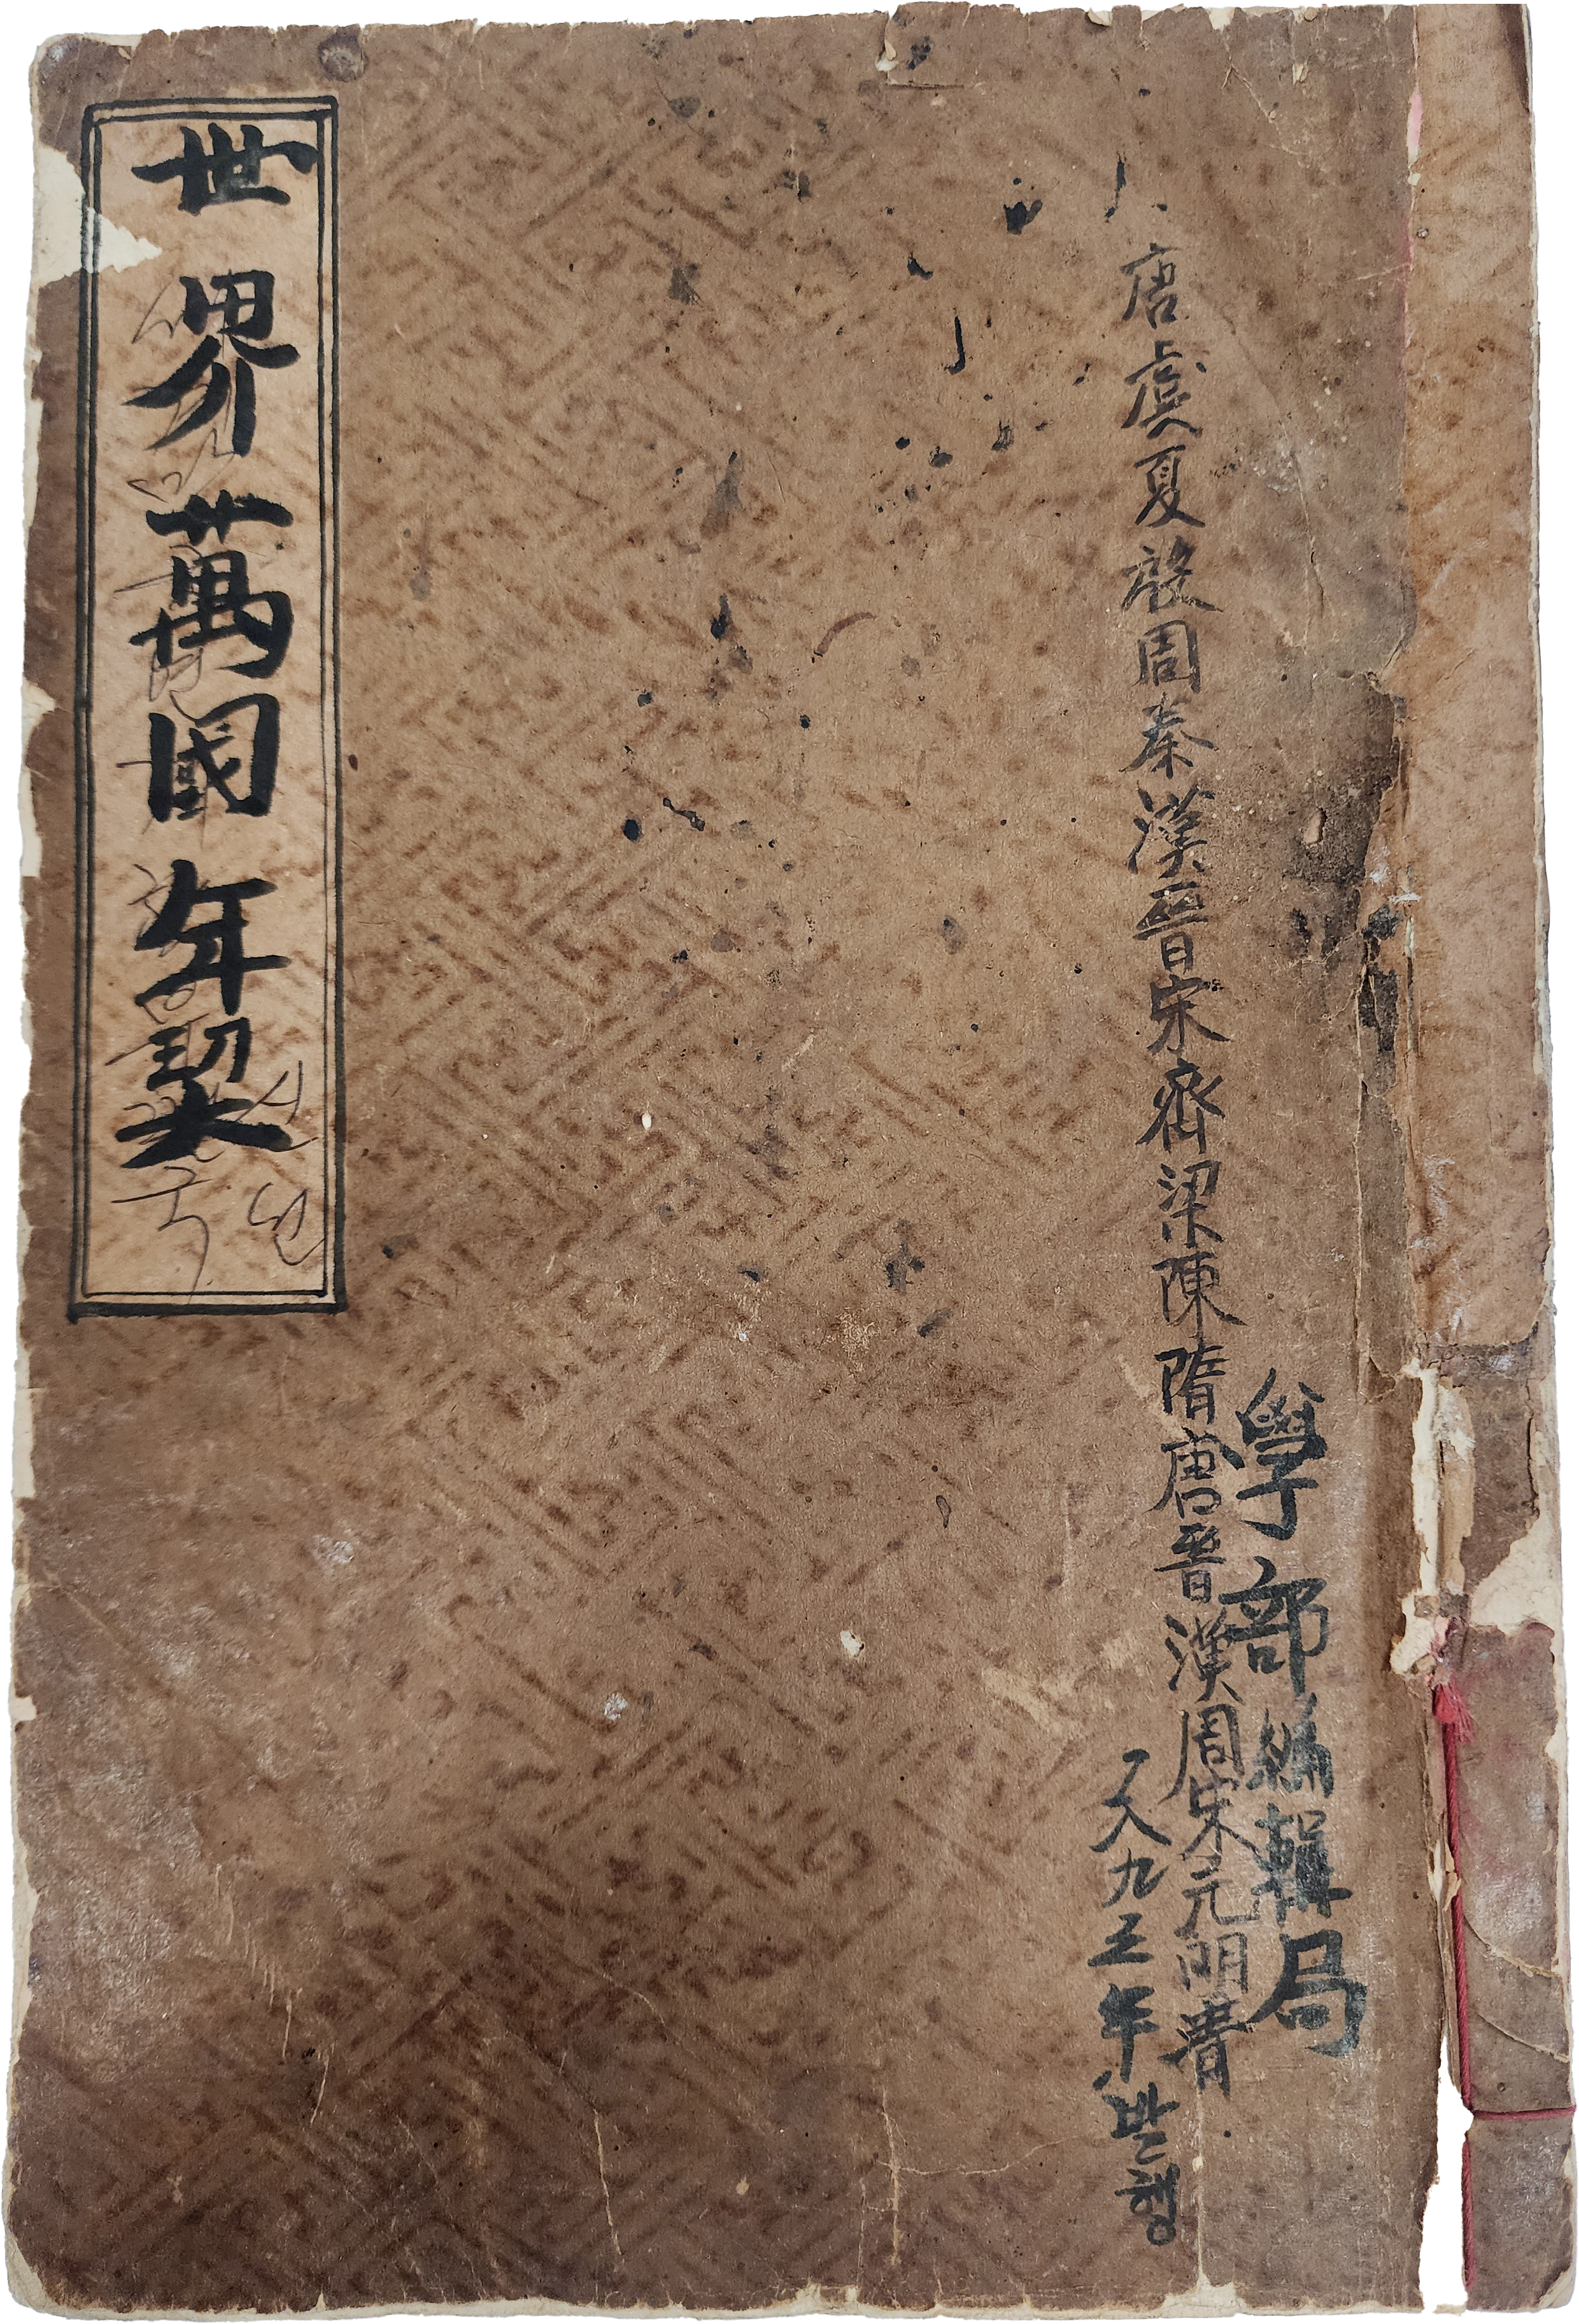 學部編輯局
唐虞夏殷周秦漢晉宋齊梁陳隋唐晉漢周宋元明淸
一八九五年발행
世界萬國年契